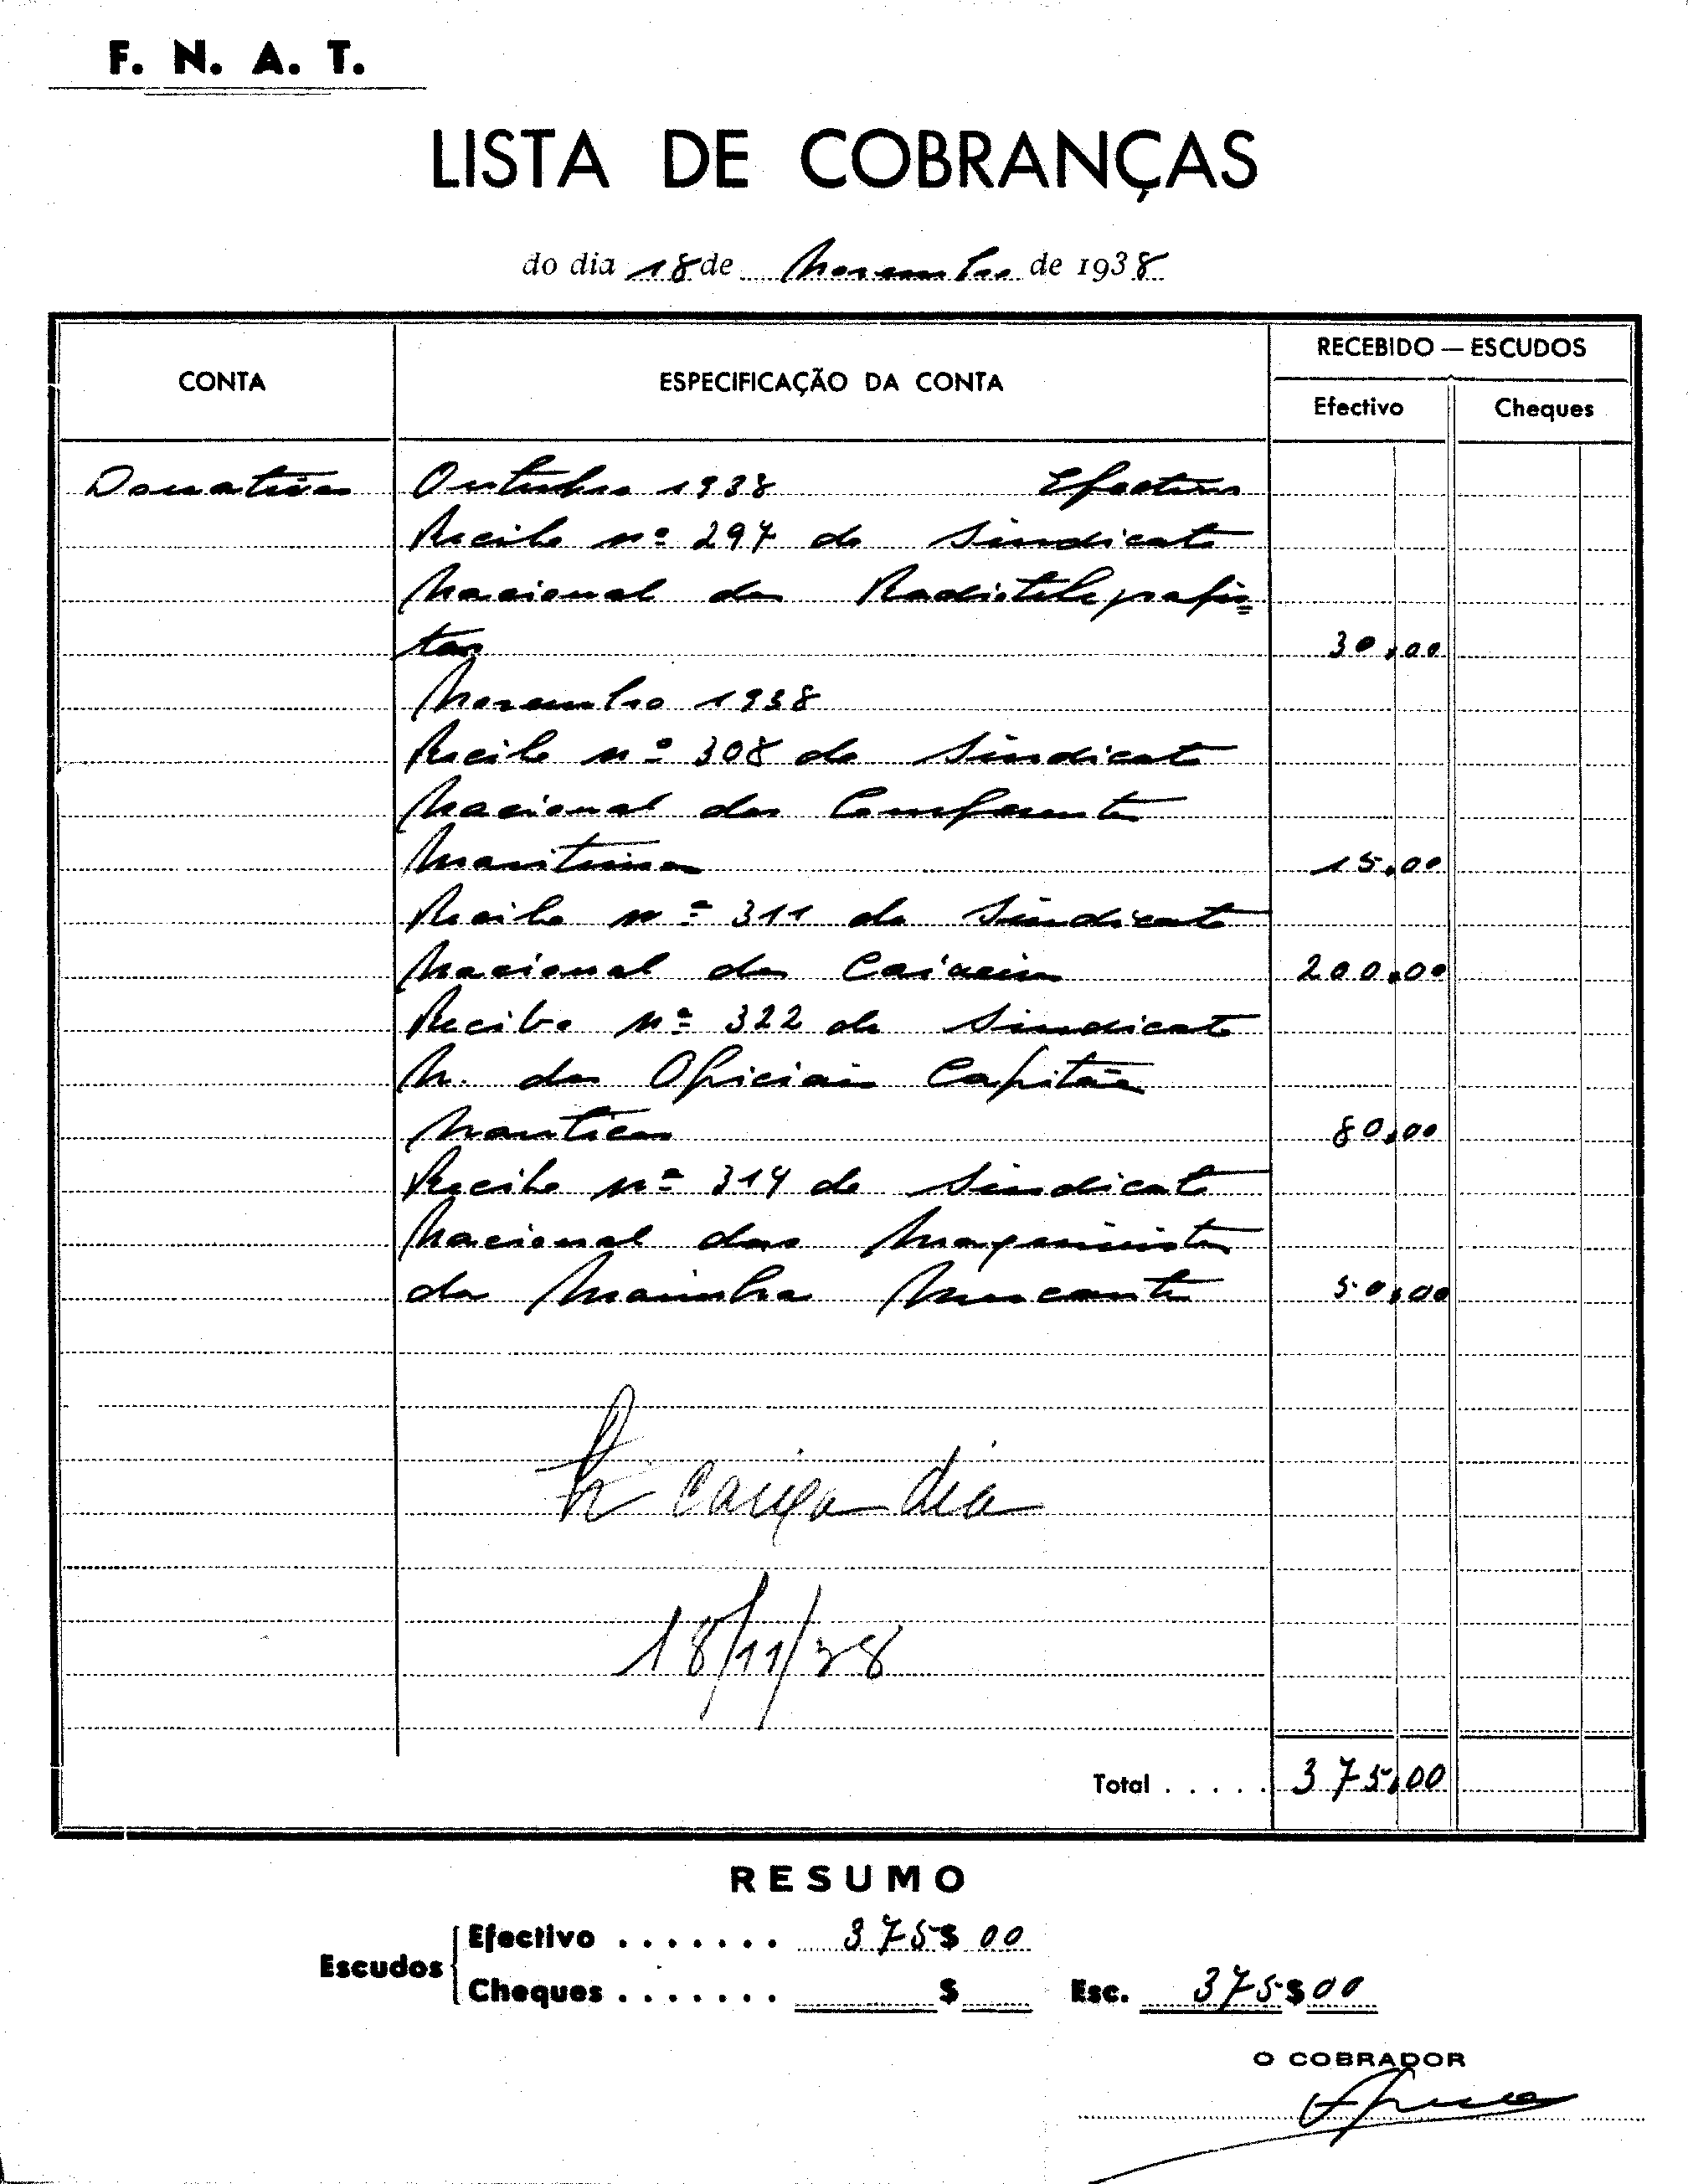 F. N. A. T.
LISTA DE COBRANÇAS
do dia 18 de Novembro de 1938
CONTA
ESPECIFICAÇÃO DA CONTA
RECEBIDO — ESCUDOS
Efectivo
Cheques
Donativos Outubro 1938 Efectivos
Recibo nº 297 do Sindicato
Nacional dos Radiotelegrafis=
tas 30,00
Novembro 1938
Recibo nº 308 do Sindicato
Nacional dos Conferentes
Maritimos 15,00
Recibo nº 311 do Sindicato
Nacional dos Caixeiros 200,00
Recibo nº 322 do Sindicato
N. dos Oficiais Capitães
Nauticos 80,00
Recibo nº 314 do Sindicato
Nacional dos Maquinistas
da Marinha Mercante 50,00
caixa dia
18/11/38
Total . . . . . 375,00
RESUMO
Efectivo . . . . . . . 375$00
Escudos
Cheques . . . . . . . $ Esc. 375$00
O COBRADOR